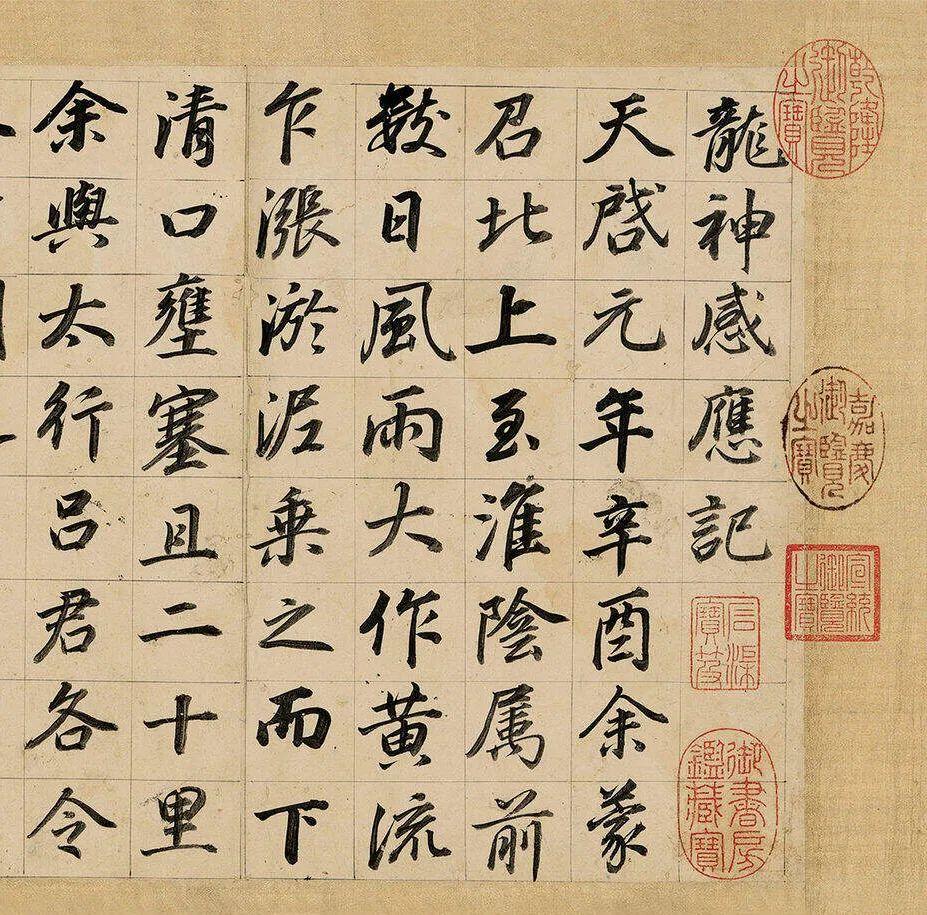 龍神感應記
天啓元年辛酉余蒙
召北上至淮陰属前
數日風雨大作黃流
乍漲淤泥乗之而下
清口壅塞且二十里
余與太行呂君各令
乾隆御覽之寶
嘉慶御覽之寶
宣統御覽之寶
石渠寶笈
御書房鑑藏寶